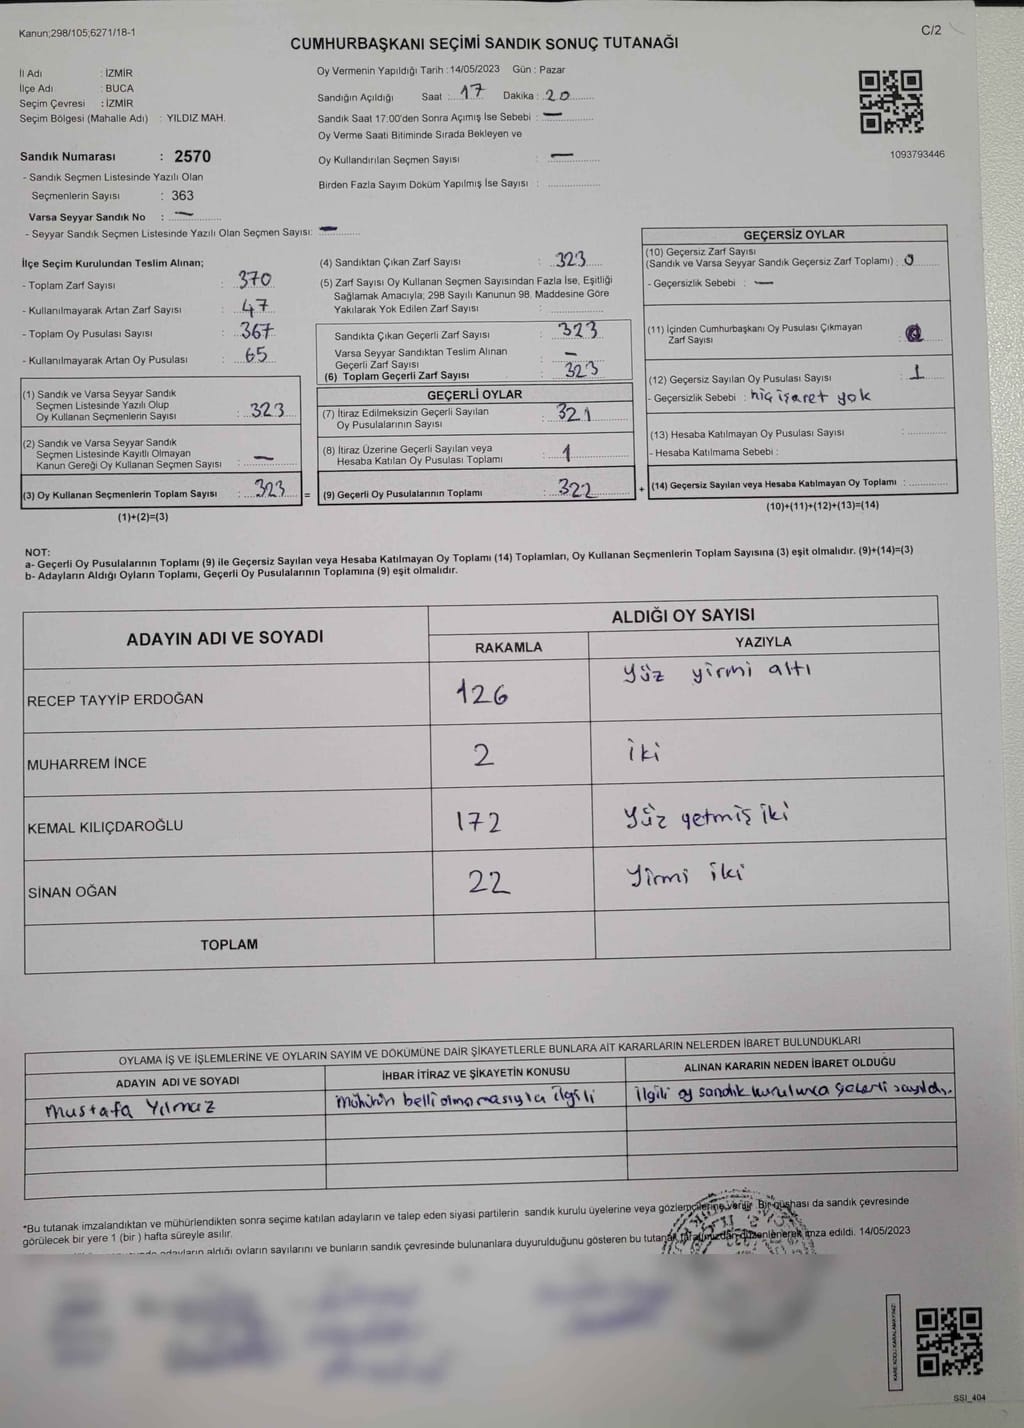 Kanun;298/105;6271/18-1
C/2
CUMHURBAŞKANI SEÇİMİ SANDIK SONUÇ TUTANAĞI
İl Adı : İZMİR
İlçe Adı : BUCA
Seçim Çevresi : İZMİR
Seçim Bölgesi (Mahalle Adı) : YILDIZ MAH.
Sandık Numarası : 2570
- Sandık Seçmen Listesinde Yazılı Olan
Seçmenlerin Sayısı : 363
Varsa Seyyar Sandık No : —
- Seyyar Sandık Seçmen Listesinde Yazılı Olan Seçmen Sayısı: —
Oy Vermenin Yapıldığı Tarih : 14/05/2023 Gün : Pazar
Sandığın Açıldığı Saat : 17 Dakika : 20
Sandık Saat 17:00'den Sonra Açımış İse Sebebi : —
Oy Verme Saati Bitiminde Sırada Bekleyen ve
Oy Kullandırılan Seçmen Sayısı : —
Birden Fazla Sayım Döküm Yapılmış İse Sayısı :
1093793446
İlçe Seçim Kurulundan Teslim Alınan;
- Toplam Zarf Sayısı : 370
- Kullanılmayarak Artan Zarf Sayısı : 47
- Toplam Oy Pusulası Sayısı : 367
- Kullanılmayarak Artan Oy Pusulası : 65
(1) Sandık ve Varsa Seyyar Sandık
Seçmen Listesinde Yazılı Olup
Oy Kullanan Seçmenlerin Sayısı : 323
(2) Sandık ve Varsa Seyyar Sandık
Seçmen Listesinde Kayıtlı Olmayan
Kanun Gereği Oy Kullanan Seçmen Sayısı : —
(3) Oy Kullanan Seçmenlerin Toplam Sayısı : 323 =
(1)+(2)=(3)
(4) Sandıktan Çıkan Zarf Sayısı : 323
(5) Zarf Sayısı Oy Kullanan Seçmen Sayısından Fazla İse, Eşitliği
Sağlamak Amacıyla; 298 Sayılı Kanunun 98. Maddesine Göre
Yakılarak Yok Edilen Zarf Sayısı :
Sandıkta Çıkan Geçerli Zarf Sayısı : 323
Varsa Seyyar Sandıktan Teslim Alınan
Geçerli Zarf Sayısı : —
(6) Toplam Geçerli Zarf Sayısı : 323
GEÇERLİ OYLAR
(7) İtiraz Edilmeksizin Geçerli Sayılan
Oy Pusulalarının Sayısı : 321
(8) İtiraz Üzerine Geçerli Sayılan veya
Hesaba Katılan Oy Pusulası Toplamı : 1
(9) Geçerli Oy Pusulalarının Toplamı : 322 +
GEÇERSİZ OYLAR
(10) Geçersiz Zarf Sayısı
(Sandık ve Varsa Seyyar Sandık Geçersiz Zarf Toplamı) : 0
- Geçersizlik Sebebi : —
(11) İçinden Cumhurbaşkanı Oy Pusulası Çıkmayan
Zarf Sayısı :
(12) Geçersiz Sayılan Oy Pusulası Sayısı : 1
- Geçersizlik Sebebi : hiç işaret yok
(13) Hesaba Katılmayan Oy Pusulası Sayısı :
- Hesaba Katılmama Sebebi :
(14) Geçersiz Sayılan veya Hesaba Katılmayan Oy Toplamı :
(10)+(11)+(12)+(13)=(14)
NOT:
a- Geçerli Oy Pusulalarının Toplamı (9) ile Geçersiz Sayılan veya Hesaba Katılmayan Oy Toplamı (14) Toplamları, Oy Kullanan Seçmenlerin Toplam Sayısına (3) eşit olmalıdır. (9)+(14)=(3)
b- Adayların Aldığı Oyların Toplamı, Geçerli Oy Pusulalarının Toplamına (9) eşit olmalıdır.
ADAYIN ADI VE SOYADI
ALDIĞI OY SAYISI
RAKAMLA YAZIYLA
RECEP TAYYİP ERDOĞAN 126 Yüz yirmi altı
MUHARREM İNCE 2 iki
KEMAL KILIÇDAROĞLU 172 Yüz yetmiş iki
SİNAN OĞAN 22 Yirmi iki
TOPLAM
OYLAMA İŞ VE İŞLEMLERİNE VE OYLARIN SAYIM VE DÖKÜMÜNE DAİR ŞİKAYETLERLE BUNLARA AİT KARARLARIN NELERDEN İBARET BULUNDUKLARI
ADAYIN ADI VE SOYADI İHBAR İTİRAZ VE ŞİKAYETİN KONUSU ALINAN KARARIN NEDEN İBARET OLDUĞU
Mustafa Yılmaz Mührün belli olmamasıyla ilgili İlgili oy sandık kurulunca geçerli sayıldı.
*Bu tutanak imzalandıktan ve mühürlendikten sonra seçime katılan adayların ve talep eden siyasi partilerin sandık kurulu üyelerine veya gözlemcilerine verilir. Bir nüshası da sandık çevresinde
görülecek bir yere 1 (bir) hafta süreyle asılır.
adayların aldığı oyların sayılarını ve bunların sandık çevresinde bulunanlara duyurulduğunu gösteren bu tutanak tarafımızdan düzenlenerek imza edildi. 14/05/2023
KARE KODU KARALAMAYINIZ!
SSI_404